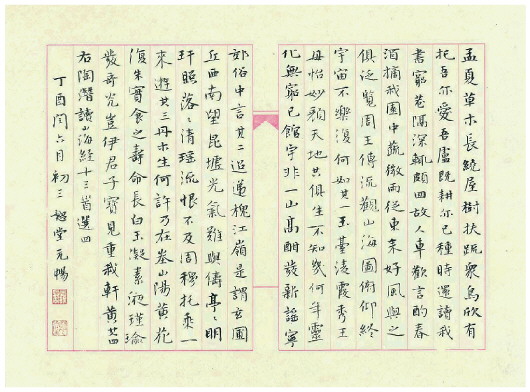 孟夏草木長繞屋樹扶疏眾鳥欣有
托吾亦愛吾廬既耕亦已種時還讀我
書窮巷隔深轍頗回故人車歡言酌春
酒摘我園中蔬微雨從東來好風與之
俱泛覽周王傳流觀山海圖俯仰終
宇宙不樂復何如其一玉臺凌霞秀王
母怡妙顏天地共俱生不知幾何年靈
化無窮已館宇非一山高酣發新謠寧
效俗中言其二迢遞槐江嶺是謂玄圃
丘西南望昆墟光氣難與儔亭〻明
玕照落〻清瑤流恨不及周穆托乘一
來遊其三丹木生何許乃在峚山陽黃花
復朱實食之壽命長白玉凝素液瑾瑜
發奇光豈伊君子寶見重我軒黃其四
右陶潛讀山海經十三首選四
丁酉閏六月初三堂元暢